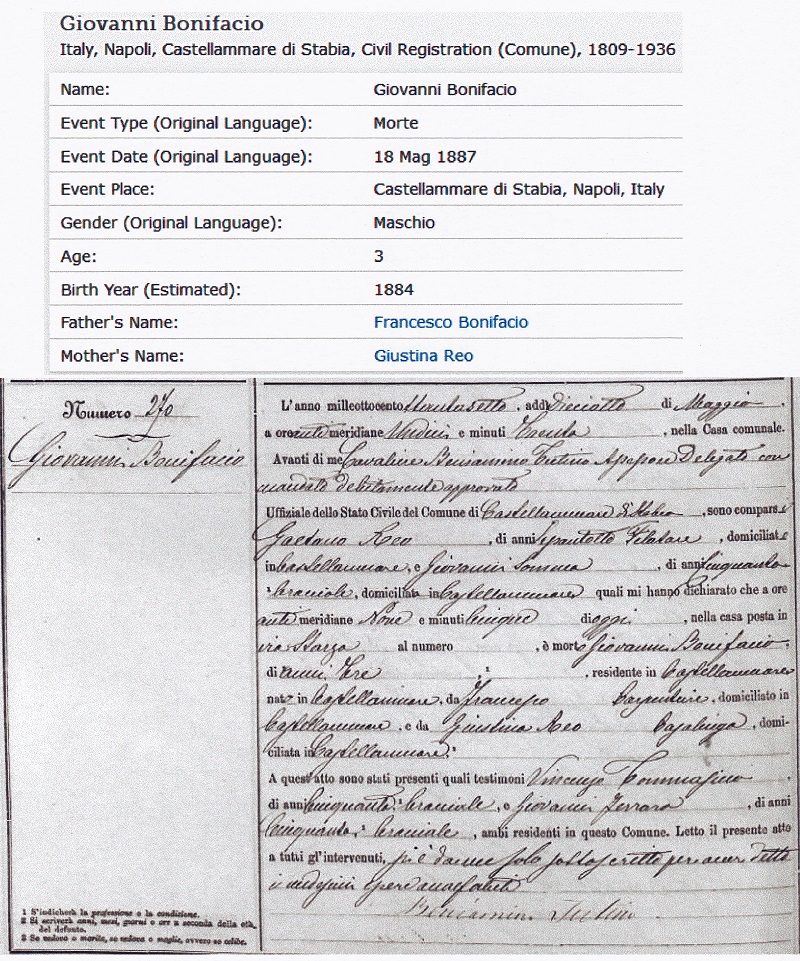 Giovanni Bonifacio
Italy, Napoli, Castellammare di Stabia, Civil Registration (Comune), 1809-1936
Name: Giovanni Bonifacio
Event Type (Original Language): Morte
Event Date (Original Language): 18 Mag 1887
Event Place: Castellammare di Stabia, Napoli, Italy
Gender (Original Language): Maschio
Age: 3
Birth Year (Estimated): 1884
Father's Name: Francesco Bonifacio
Mother's Name: Giustina Reo
Numero 270
Giovanni Bonifacio
L'anno milleottocento ottantasette, addì dieciotto di Maggio,
a ore anti meridiane undici e minuti trenta, nella Casa comunale.
Avanti di me Cavaliere Beniamino Assessore Delegato con
mandato debitamente approvato
Uffiziale dello Stato Civile del Comune di Castellammare di Stabia, sono comparsi
Gaetano Reo, di anni, domiciliato
in Castellammare, e Giovanni Somma, di anni cinquanta
bracciale, domiciliato in Castellammare quali mi hanno dichiarato che a ore
anti meridiane Nove e minuti cinque di oggi, nella casa posta in
via Starza al numero, è morto Giovanni Bonifacio,
di anni tre, residente in Castellammare
nato in Castellammare, da Francesco Carpentiere, domiciliato in
Castellammare, e da Giustina Reo Casalinga, domi-
ciliata in Castellammare.
A quest'atto sono stati presenti quali testimoni Vincenzo Tommasino,
di anni cinquanta, bracciale, e Giovanni Ferrara, di anni
cinquanta, bracciale, ambi residenti in questo Comune. Letto il presente atto
a tutti gl'intervenuti, si è da me solo sottoscritto per aver detto
i medesimi essere analfabeti
Beniamino
1 S'indicherà la professione o la condizione.
2 Si scriverà anni, mesi, giorni o ore a seconda della età
del defunto.
3 Se vedovo o marito, se vedova o moglie, ovvero se celibe.